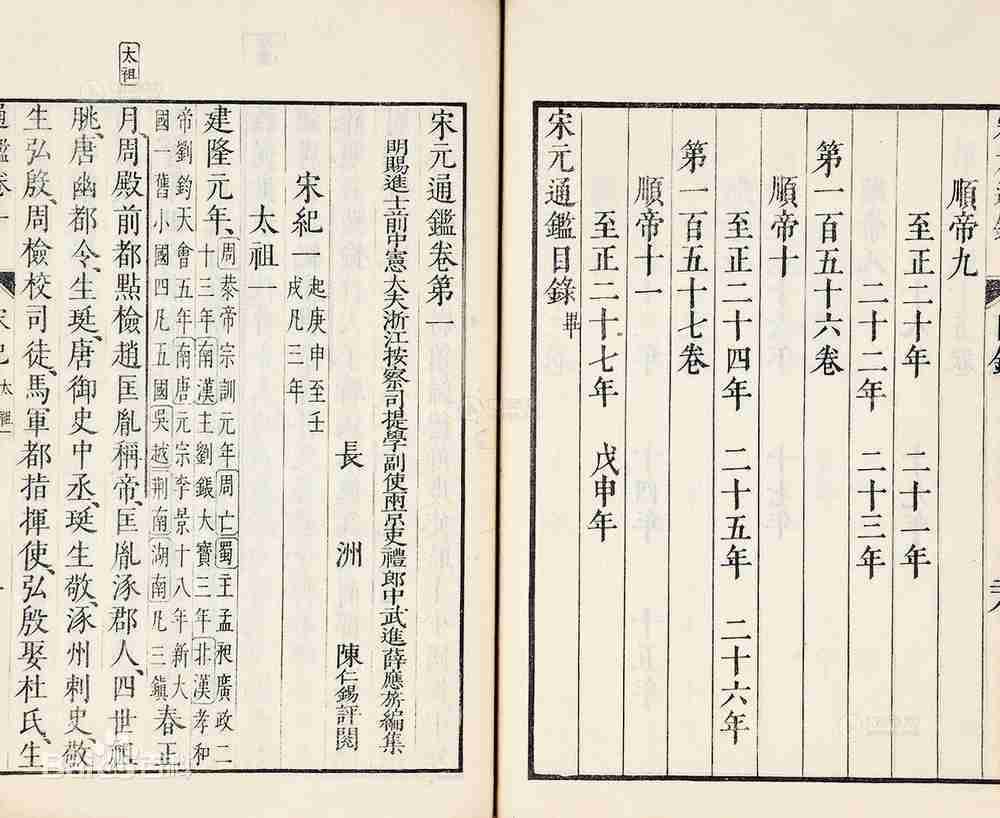 順帝九
至正二十年 二十一年
二十二年 二十三年
第一百五十六卷
順帝十
至正二十四年 二十五年 二十六年
第一百五十七卷
順帝十一
至正二十七年 戊申年
宋元通鑑目錄畢
宋元通鑑卷第一
明賜進士前中憲大夫浙江按察司提學副使兩京吏禮郎中武進薛應旂編集
長洲 陳仁錫評閱
宋紀一 起庚申至壬戌凡三年
太祖一
建隆元年、周恭帝宗訓元年周亡蜀主孟昶廣政二
十三年南漢主劉鋹大寶三年北漢孝和
帝劉鈞天會五年南唐元宗李景十八年新大
國一舊小國四凡五國吳越荊南湖南凡三鎮 春正
太祖
月、周殿前都點檢趙匡胤稱帝、匡胤涿郡人、四世祖
朓、唐幽都令、生珽、唐御史中丞、珽生敬、涿州刺史、敬
生弘殷、周檢校司徒、馬軍都指揮使、弘殷娶杜氏、生
通鑑卷一 宋紀 太祖